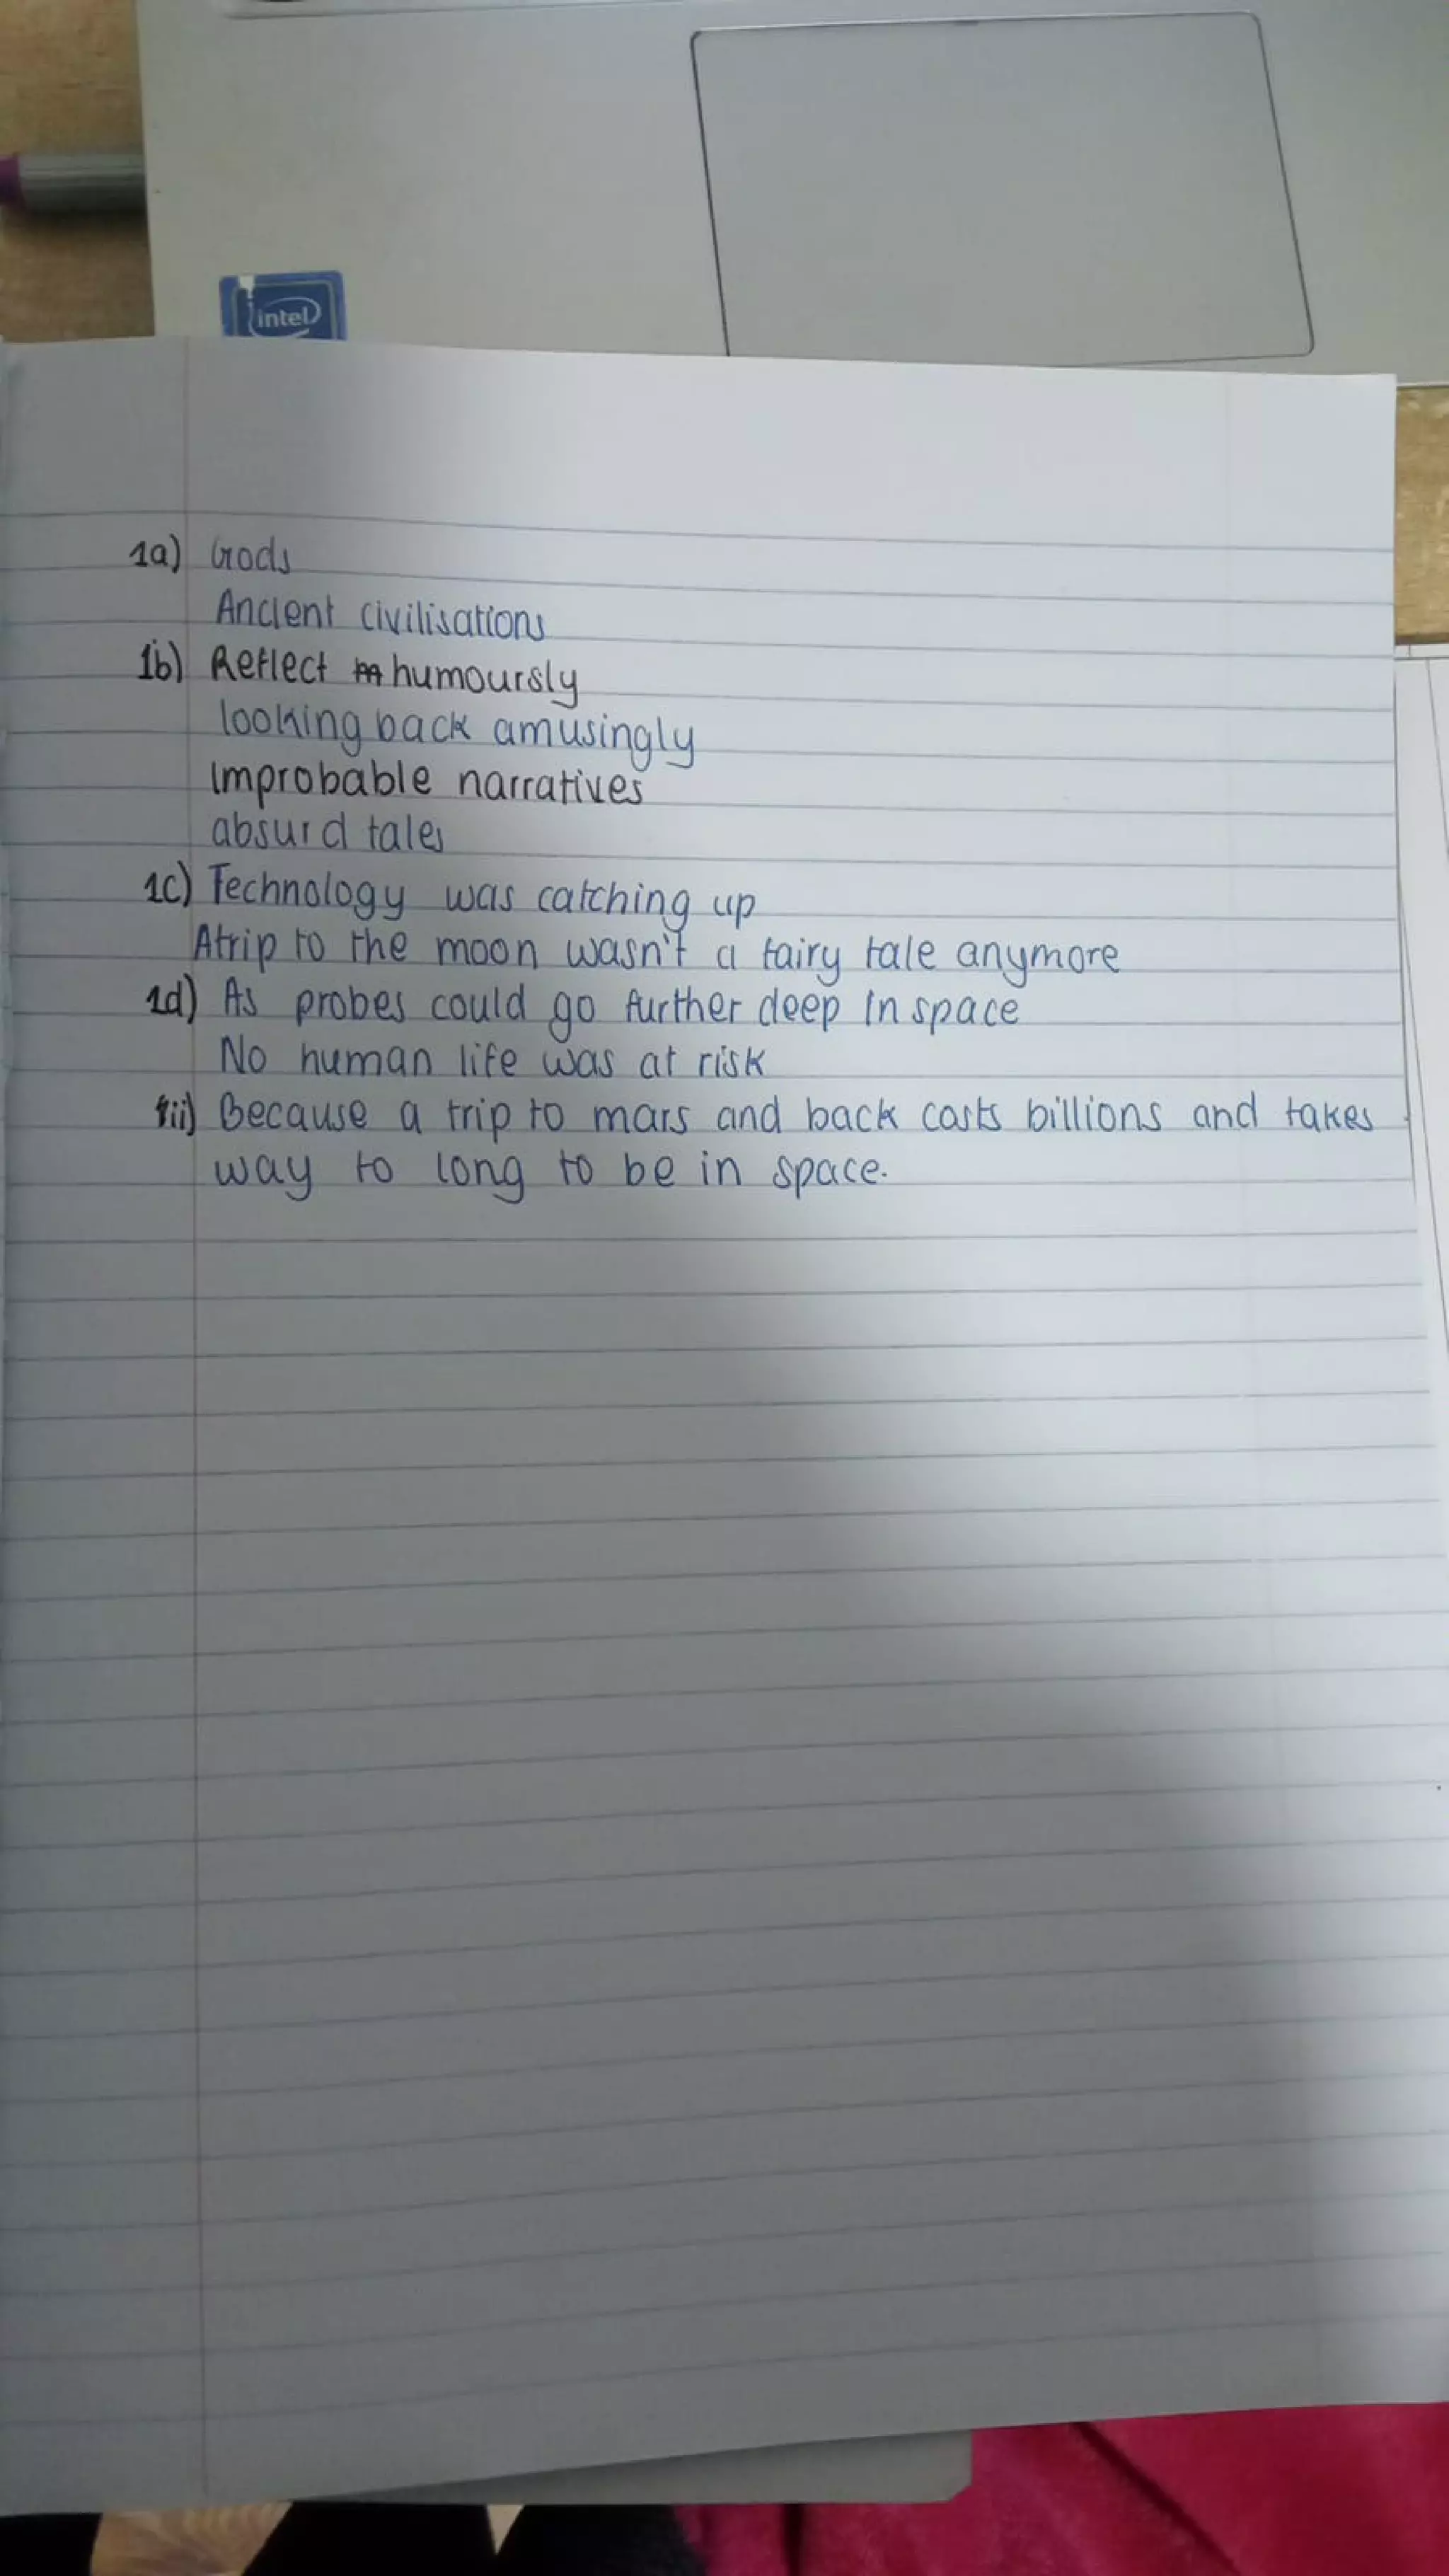 intel
1a) Gods
Ancient civilisations
1b) Reflect humoursly
looking back amusingly
Improbable narratives
absurd tales
1c) Technology was catching up
A trip to the moon wasn't a fairy tale anymore
1d) As probes could go further deep in space
No human life was at risk
ii) Because a trip to mars and back costs billions and takes
way to long to be in space.